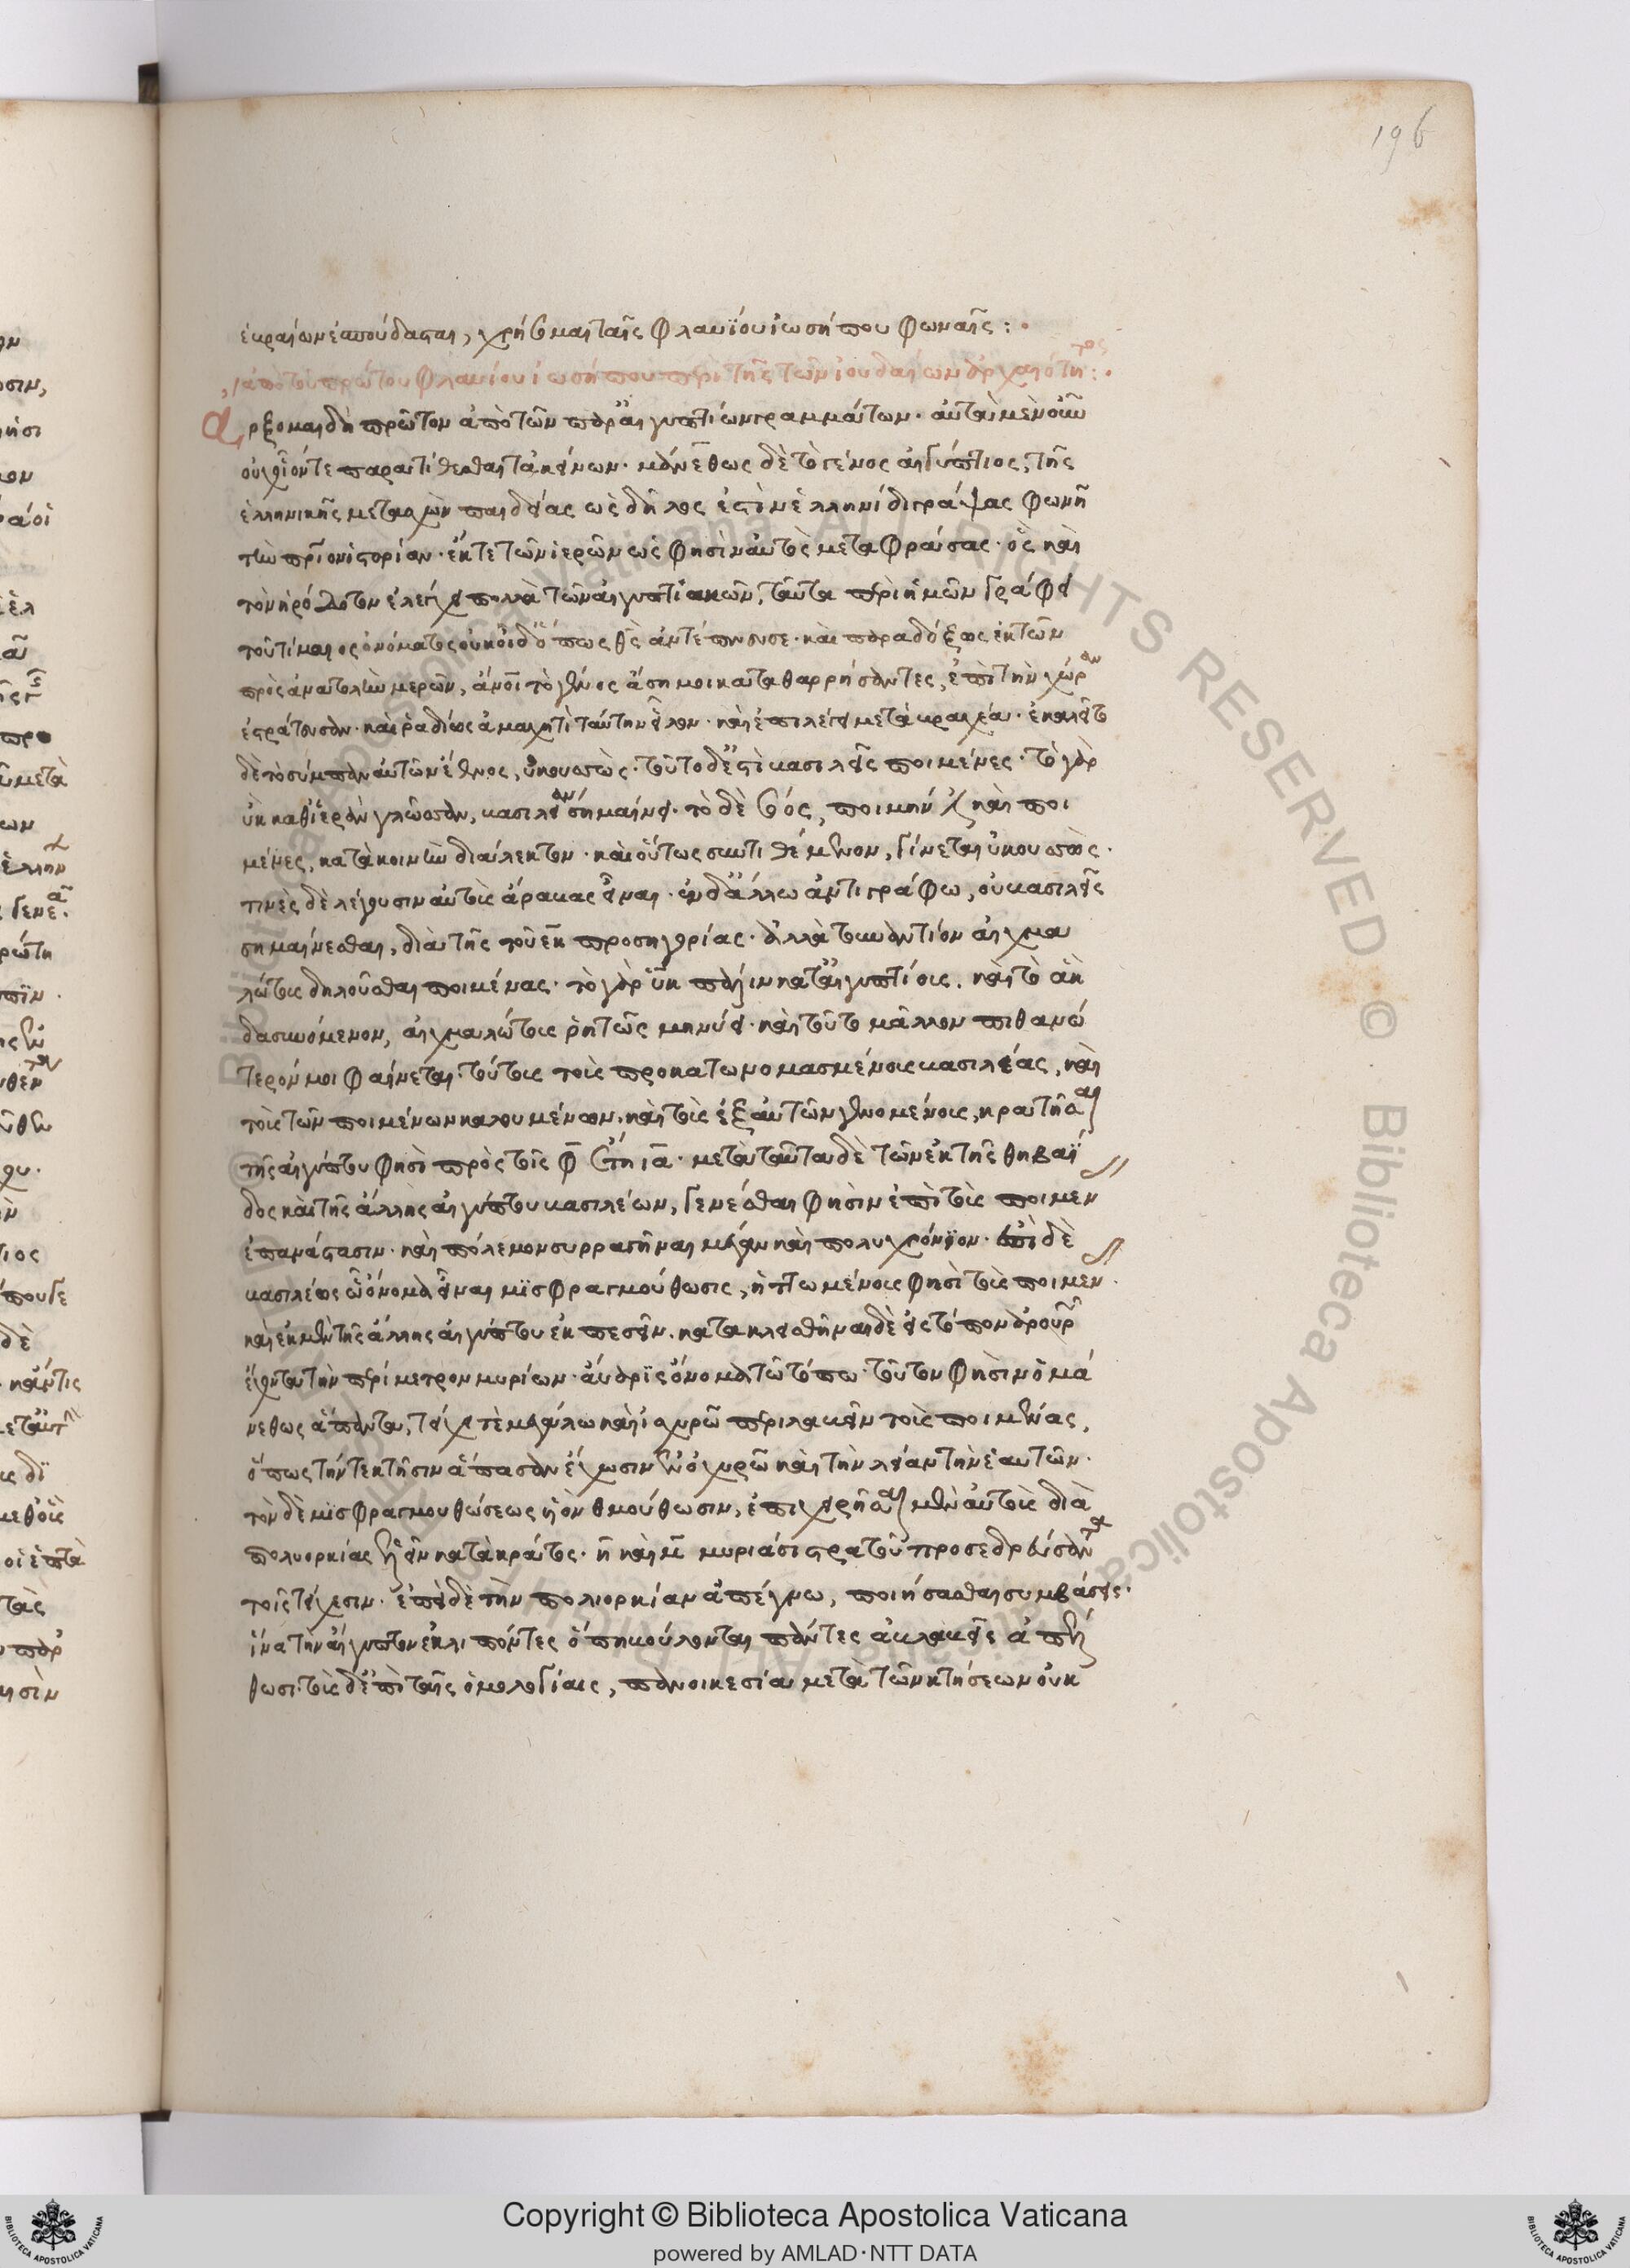 196
ἑβραίων ἐσπούδασται, χρήσομαι ταῖς φλαυΐου ἰωσήπου φωναῖς :·
ἀπὸ τοῦ πρώτου φλαυίου ἰωσήπου περὶ τῆς τῶν ἰουδαίων ἀρχαιότητος :·
Αρξομαι δὴ πρῶτον ἀπὸ τῶν παρ' αἰγυπτίων γραμμάτων. αὐτὰ μὲν οὖν
οὐχ οἷόν τε παρατίθεσθαι τἀκείνων. μάνεθως δὲ τὸ γένος αἰγύπτιος, τῆς
ἑλληνικῆς μετασχὼν παιδείας ὡς δῆλος ἐστὶν ἑλληνίδι γράψας φωνῆ
τὴν πάτριον ἱστορίαν. ἔκ τε τῶν ἱερῶν ὥς φησὶν αὐτὸς μεταφράσας. ὃς καὶ
τὸν ἡρόδοτον ἐλέγχει πολλὰ τῶν αἰγυπτιακῶν, ταῦτα περὶ ἡμῶν γράφει
τοῦ τίμαιος ὀνόματος οὐκ οἶδ' ὅπως θεὸς ἀντέπνευσε. καὶ παραδόξως ἐκ τῶν
πρὸς ἀνατολὴν μερῶν, ἄνθρωποι τὸ γένος ἄσημοι καταθαρρήσαντες, ἐπὶ τὴν χώραν
ἐστράτευσαν. καὶ ῥαδίως ἀμαχητὶ ταύτην εἷλον. καὶ ἐπιλέγει μετὰ βραχέα. ἐκαλεῖτο
δὲ τὸ σύμπαν αὐτῶν ἔθνος, ὑκουσσώς. τοῦτο δέ ἐστι βασιλεῖς ποιμένες. τὸ γὰρ
ὑκ καθ' ἱερὰν γλῶσσαν, βασιλέαν σημαίνει. τὸ δὲ σός, ποιμήν ἐστι καὶ ποι
μένες, κατὰ κοινὴν διάλεκτον. καὶ οὕτως συντιθέμενον, γίνεται ὑκουσσώς.
τινὲς δὲ λέγουσιν αὐτοὺς ἄραβας εἶναι. ἐν δ' ἄλλω ἀντιγράφω, οὐ βασιλεῖς
σημαίνεσθαι, διὰ τῆς τοῦ ὓκ προσηγορίας. ἀλλὰ τοὐναντίον αἰχμα
λώτους δηλοῦσθαι ποιμένας. τὸ γὰρ ὓκ πάλιν κατ' αἰγυπτίους. καὶ τὸ ἂκ
δασυνόμενον, αἰχμαλώτους ῥητῶς μηνύει. καὶ τοῦτο μᾶλλον πιθανώ
τερόν μοι φαίνεται. τούτους τοὺς προκατωνομασμένους βασιλέας, καὶ
τοὺς τῶν ποιμένων καλουμένων, καὶ τοὺς ἐξ αὐτῶν γενομένους, κρατῆσαι
τῆς αἰγύπτου φησὶ πρὸς τοῖς φ̄ ἔτη ια. μετὰ ταῦτα δὲ τῶν ἐκ τῆς θηβαΐ
δος καὶ τῆς ἄλλης αἰγύπτου βασιλέων, γενέσθαι φησὶν ἐπὶ τοὺς ποιμέν
ἐπανάστασιν. καὶ πόλεμον συρραγῆναι μέγαν καὶ πολυχρόνιον. ἐπὶ δὲ
βασιλέως ᾧ ὄνομα εἶναι μϊσφραγμούθωσις, ἡττωμένους φησὶ τοὺς ποιμέν.
καὶ ἐκ μὲν τῆς ἄλλης αἰγύπτου ἐκπεσεῖν. κατακλεισθῆναι δὲ εἰς τόπον ἀρουρῶν
ἔχοντα τὴν περίμετρον μυρίων. αὔαρϊς ὄνομα τῶ τόπω. τοῦτον φησὶν ὁ μά
νεθως ἅπαντα, τείχει τὲ μεγάλω καὶ ἰσχυρῶ περιλαβεῖν τοὺς ποιμένας,
ὅπως τήν τε κτῆσιν ἅπασαν ἔχωσιν ἐν ὀχυρῶ καὶ τὴν λείαν τὴν ἑαυτῶν.
τὸν δὲ μϊσφραγμουθώσεως υἱὸν θμούθωσιν, ἐπιχειρῆσαι μὲν αὐτοὺς διὰ
πολυορκίας ἑλεῖν κατὰ κράτος. η̄ καὶ μ̄ μυριάσι στρατοῦ προσεδρεύσαντα
τοῖς τείχεσιν. ἐπεὶ δὲ τὴν πολιορκίαν ἀπέγνω, ποιήσασθαι συμβάσεις.
ἵνα τὴν αἴγυπτον ἐκλιπόντες ὅπη βούλονται πάντες ἀβλαβεῖς ἀπέλ
θωσι. τοὺς δὲ ἐπὶ ταῖς ὁμολογίαις, πανοικεσία μετὰ τῶν κτήσεων οὐκ
Copyright © Biblioteca Apostolica Vaticana
powered by AMLAD·NTT DATA